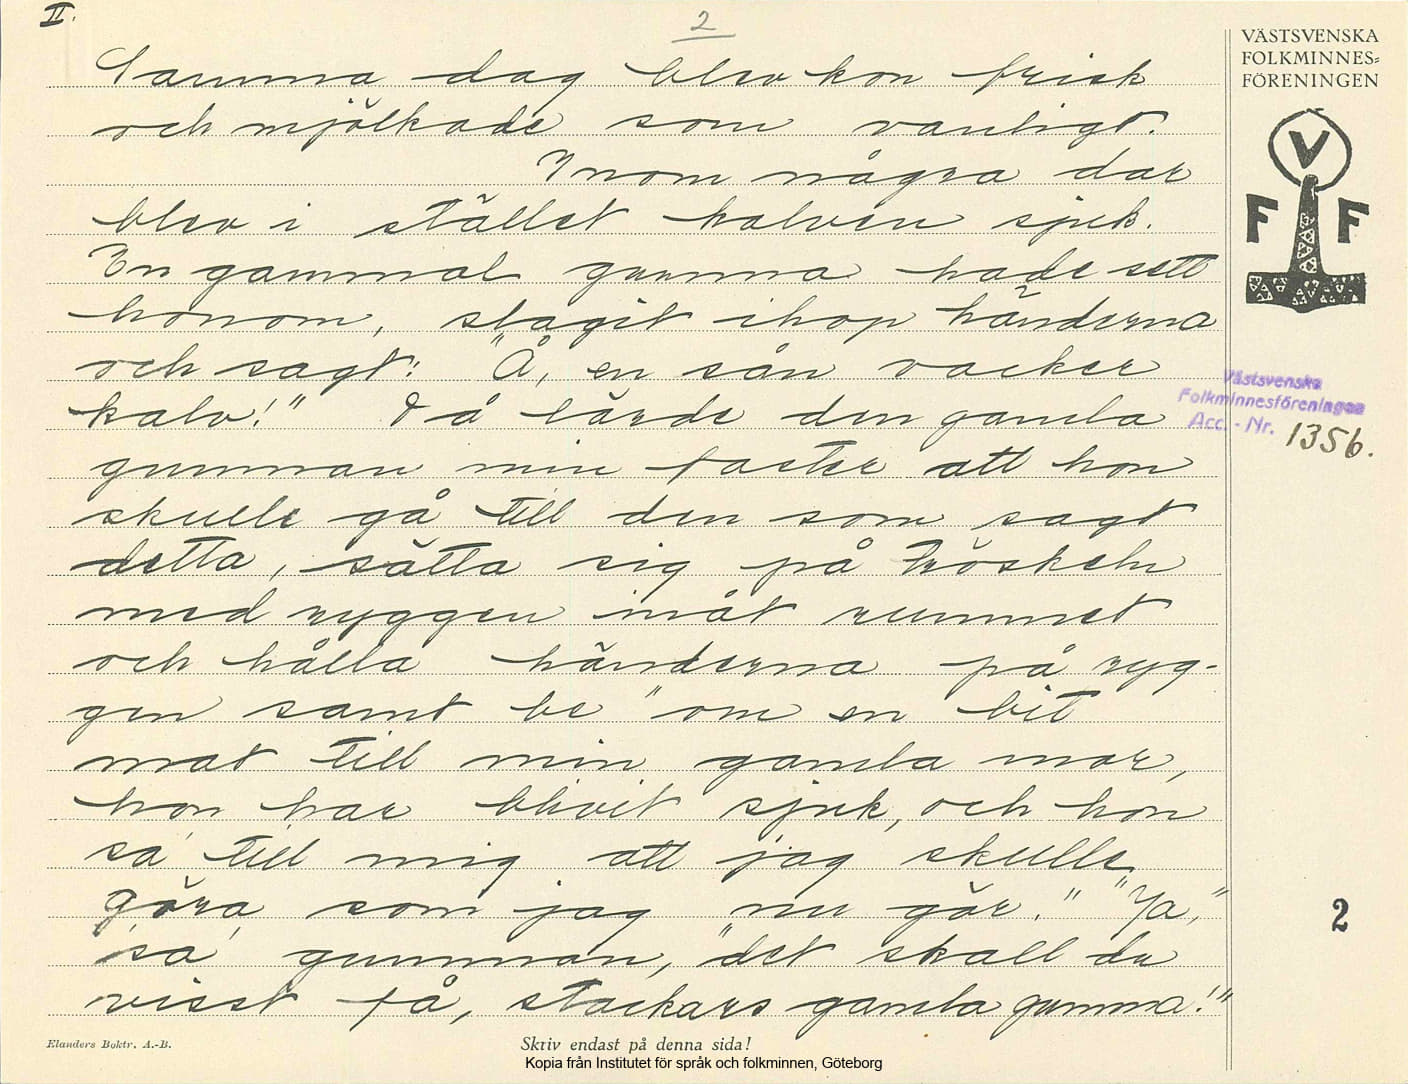 II.
2
Samma dag blev kon frisk
och mjölkade som vanligt.
Inom några dar
blev i stället kalven sjuk.
En gammal gumma hade sett
honom, slagit ihop händerna
och sagt: "Å, en sån vacker
kalv!" Då lärde den gamla
gumman min faster att hon
skulle gå till den som sagt
detta, sätta sig på tröskeln
med ryggen inåt rummet
och hålla händerna på ryg-
gen samt be "om en bit
mat till min gamla mor,
hon har blivit sjuk, och hon
sa' till mig att jag skulle
göra som jag nu gör." "Ja,"
sa' gumman, "det skall du
visst få, stackars gamla gumma!"
VÄSTSVENSKA
FOLKMINNES=
FÖRENINGEN
V
F F
Västsvenska
Folkminnesföreningen
Acc. - Nr. 1356.
2
Elanders Boktr. A.-B.
Skriv endast på denna sida!
Kopia från Institutet för språk och folkminnen, Göteborg